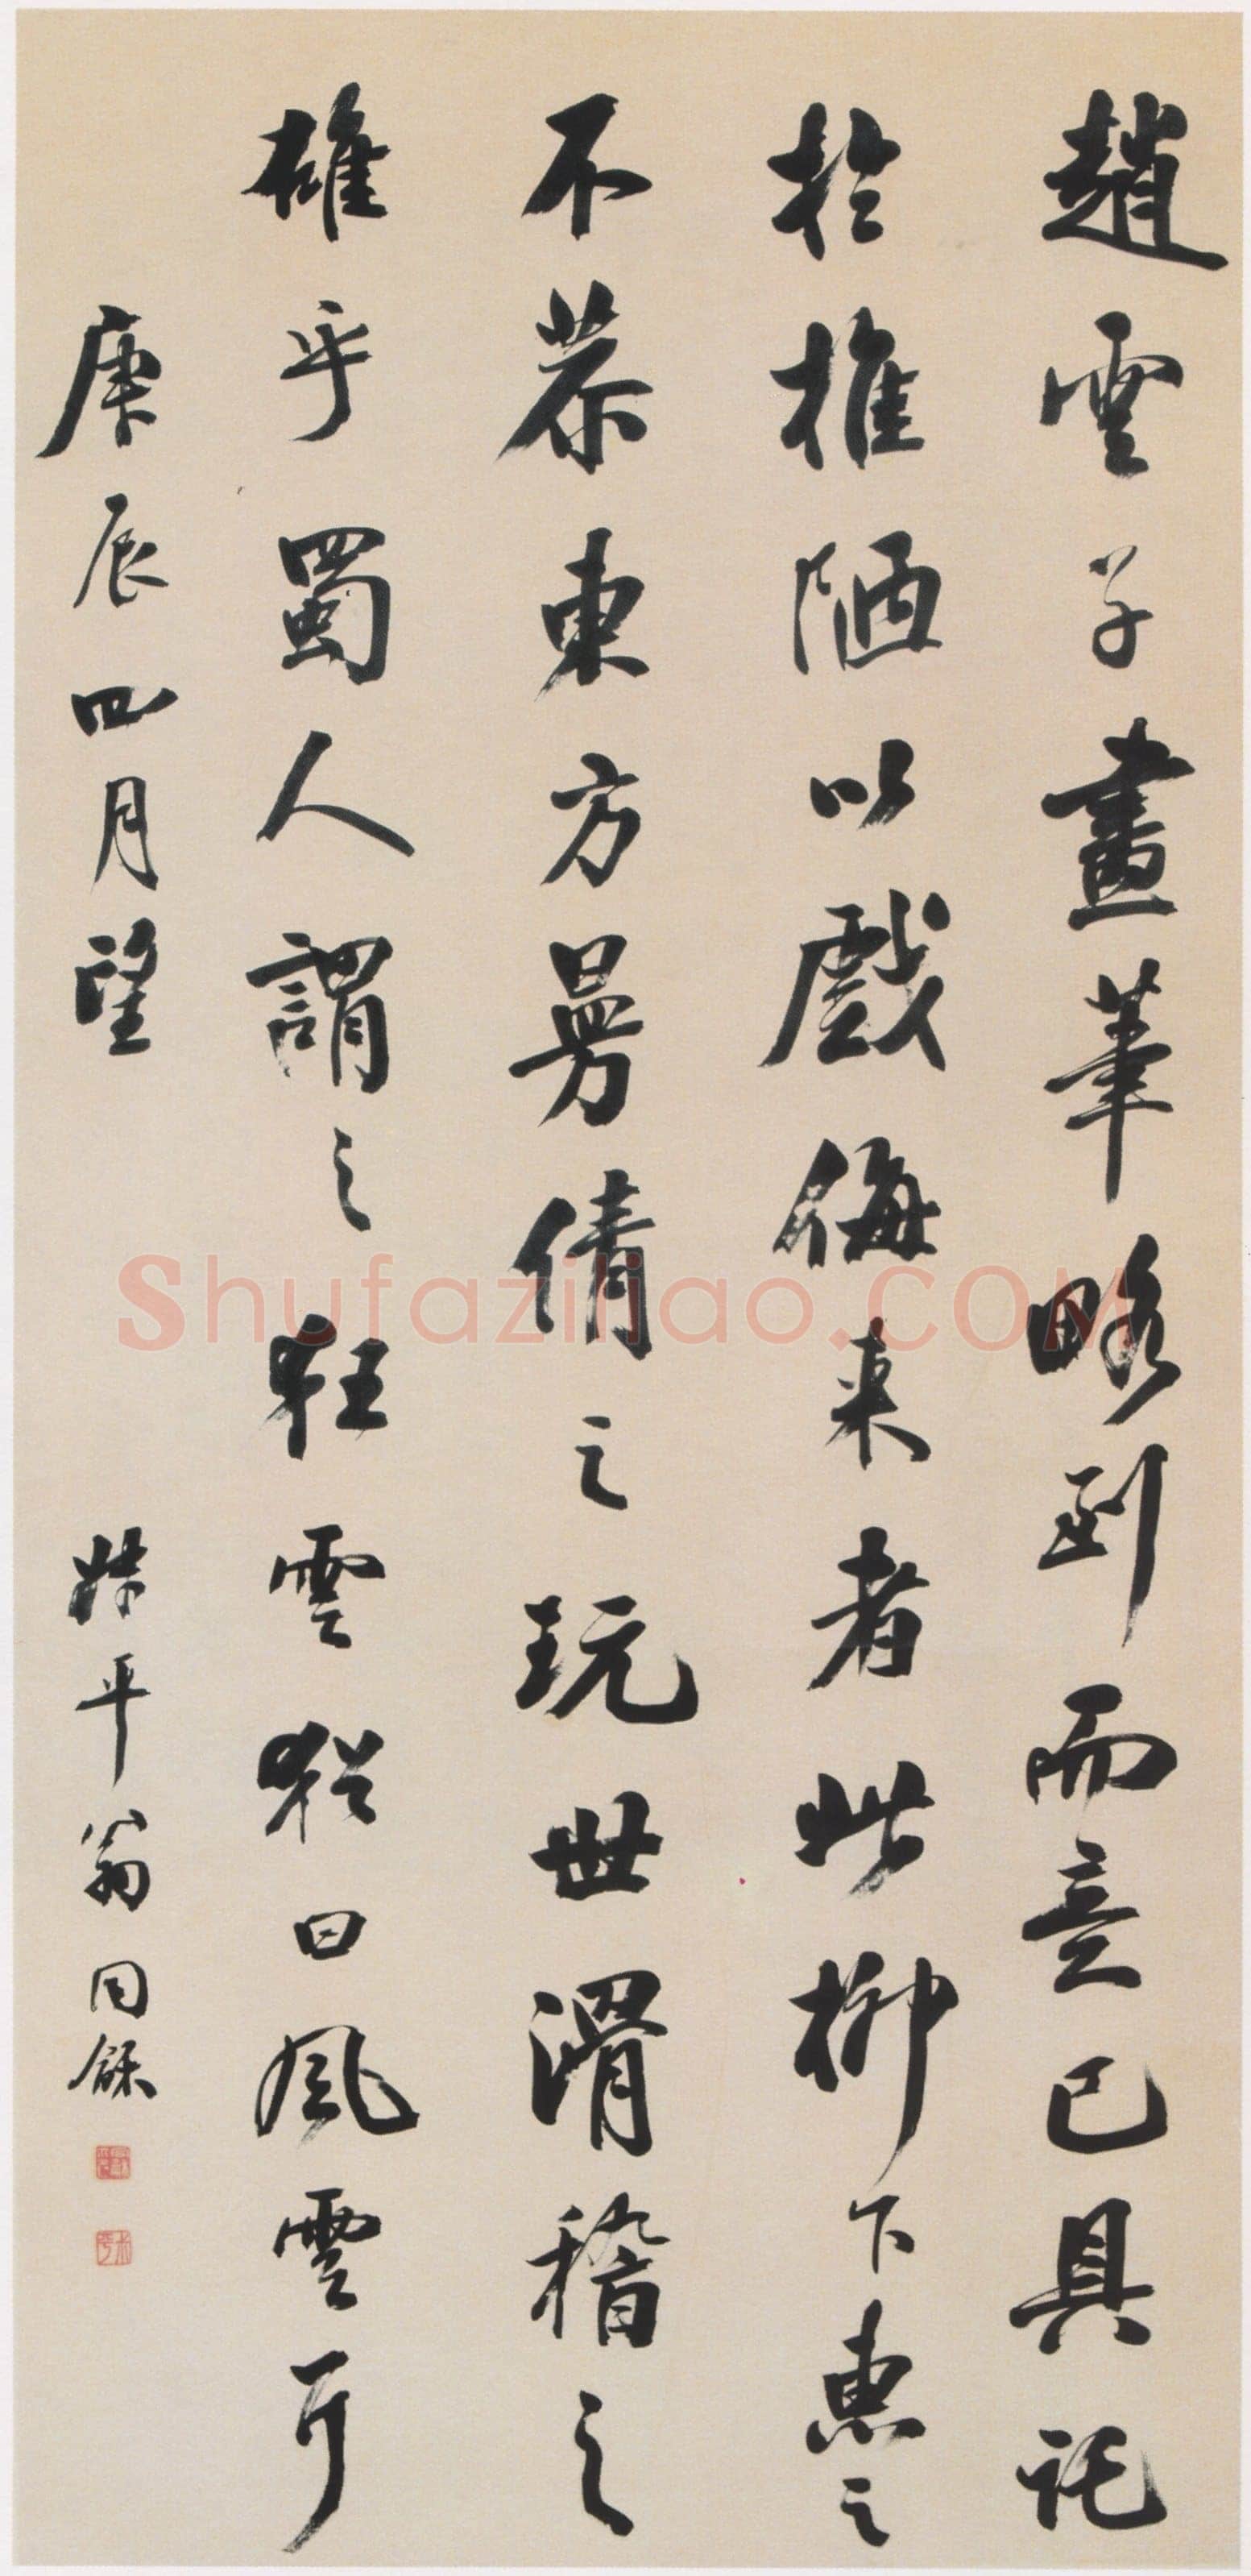 趙雲子畫筆略到而意已具託
於椎陋以戲侮來者此柳下惠之
不恭東方曼倩之玩世滑稽之
雄乎蜀人謂之狂雲猶曰風雲耳
庚辰四月望
姊平翁同龢
Shufaziliao.COM